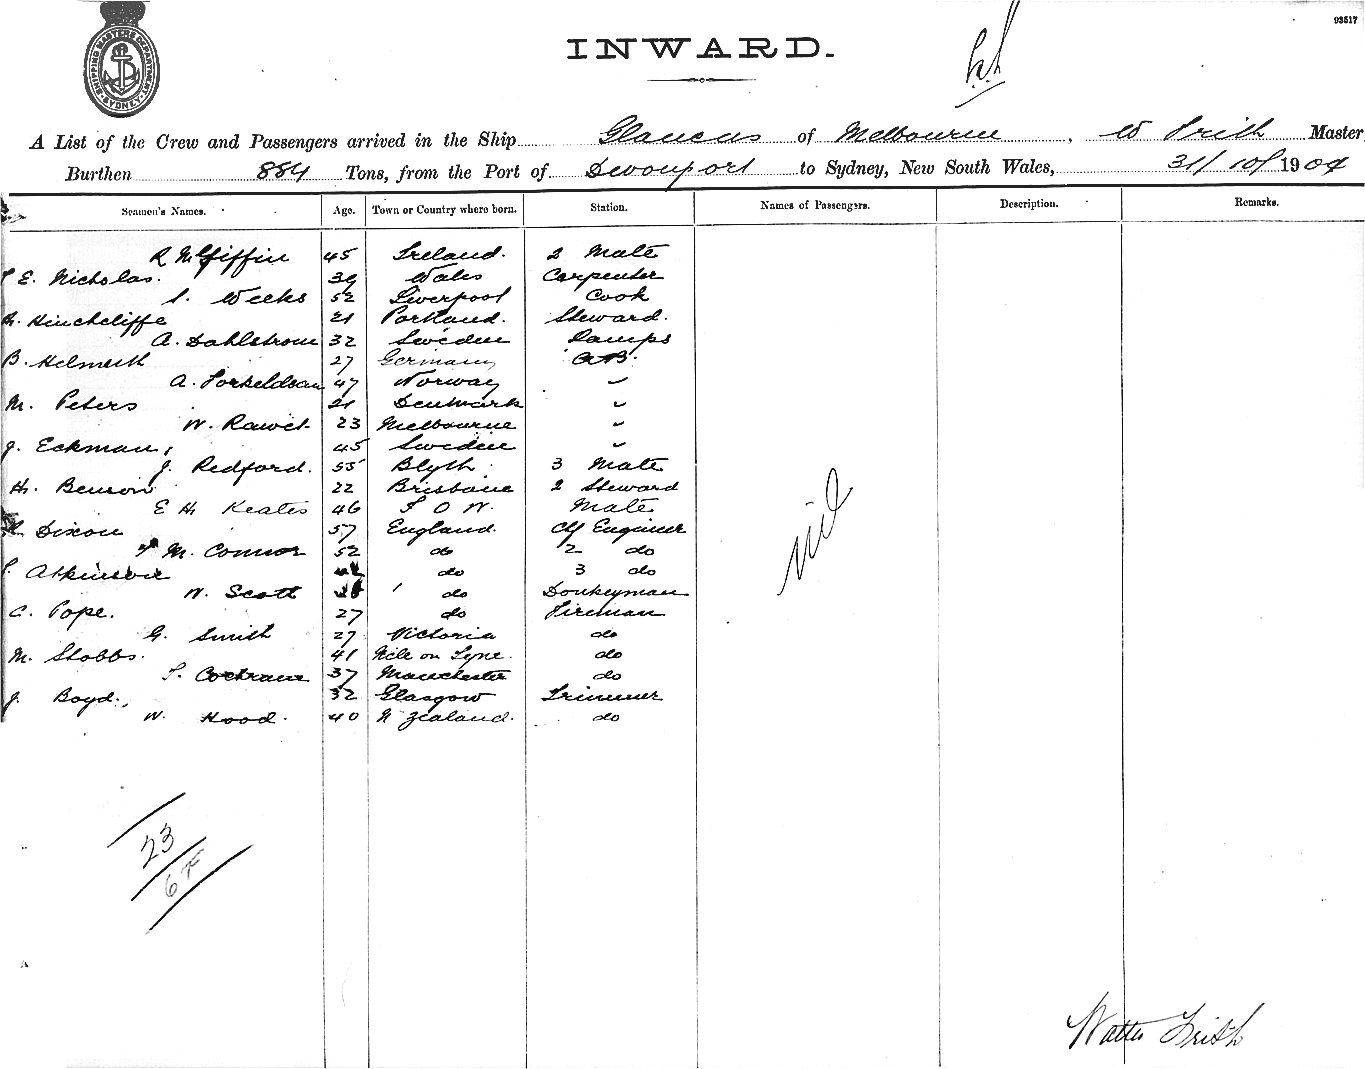 93517
SHIPPING MASTERS DEPARTMENT SYDNEY
INWARD.
A List of the Crew and Passengers arrived in the Ship Glaucus of Melbourne, W Frith Master
Burthen 884 Tons, from the Port of Devonport to Sydney, New South Wales, 31/10/1904
Seamen's Names. Age. Town or Country where born. Station. Names of Passengers. Description. Remarks.
R McGiffin 45 Ireland. 2 Mate
E. Nicholas. 39 Wales Carpenter
S. Weeks 52 Liverpool Cook
Hinchcliffe 21 Portland. Steward.
A. Dahlstrom 32 Sweden Lamps
B. Helmuth 27 Germany AB.
A. Torkeldsen 47 Norway "
M. Peters 21 Denmark "
W. Rawet 23 Melbourne "
J. Eckman, 45 Sweden "
J. Redford. 55 Blyth 3 Mate
H. Benson 22 Brisbane 2 Steward
E H Keates 46 I O W. Mate
Dixon 57 England. Chf Engineer
M. Connor 52 do 2 do
Atkinson do 3 do
W. Scott do Donkeyman
C. Pope. 27 do Fireman
G. Smith 27 Victoria do
M. Stobbs. 41 on Tyne. do
T. Cochrane 37 Manchester do
J. Boyd., 32 Glasgow Trimmer
W. Hood. 40 N Zealand. do
nil
23
6 F
Walter Frith